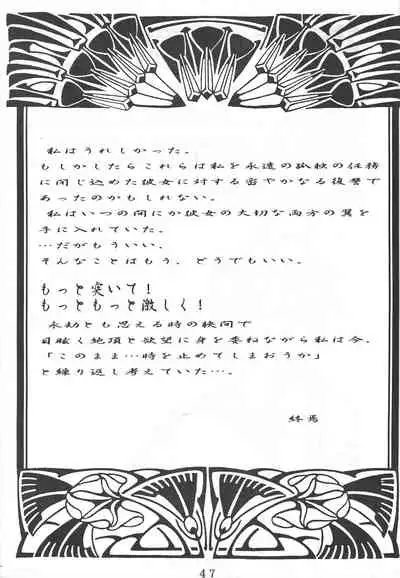 私はうれしかった。
もしかしたらこれらは私を永遠の孤独の任務
に閉じ込めた彼女に対する密やかなる復讐で
あったのかもしれない。
私はいつの間にか彼女の大切な両方の翼を
手に入れていた。
…だがもういい。
そんなことはもう、どうでもいい。
もっと突いて！
もっともっと激しく！
永劫とも思える時の狭間で
目眩く絶頂と欲望に身を委ねながら私は今、
「このまま…時を止めてしまおうか」
と繰り返し考えていた…。
終焉
47